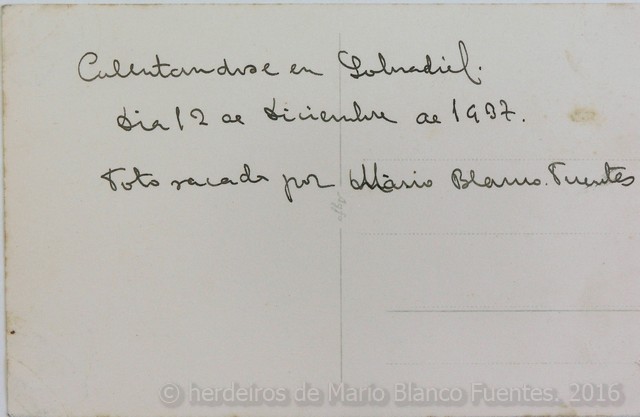 Calentandose en Sobradiel.
Dia 12 de Diciembre de 1937.
Foto sacada por Mário Blanco Fuentes
© herdeiros de Mario Blanco Fuentes. 2016